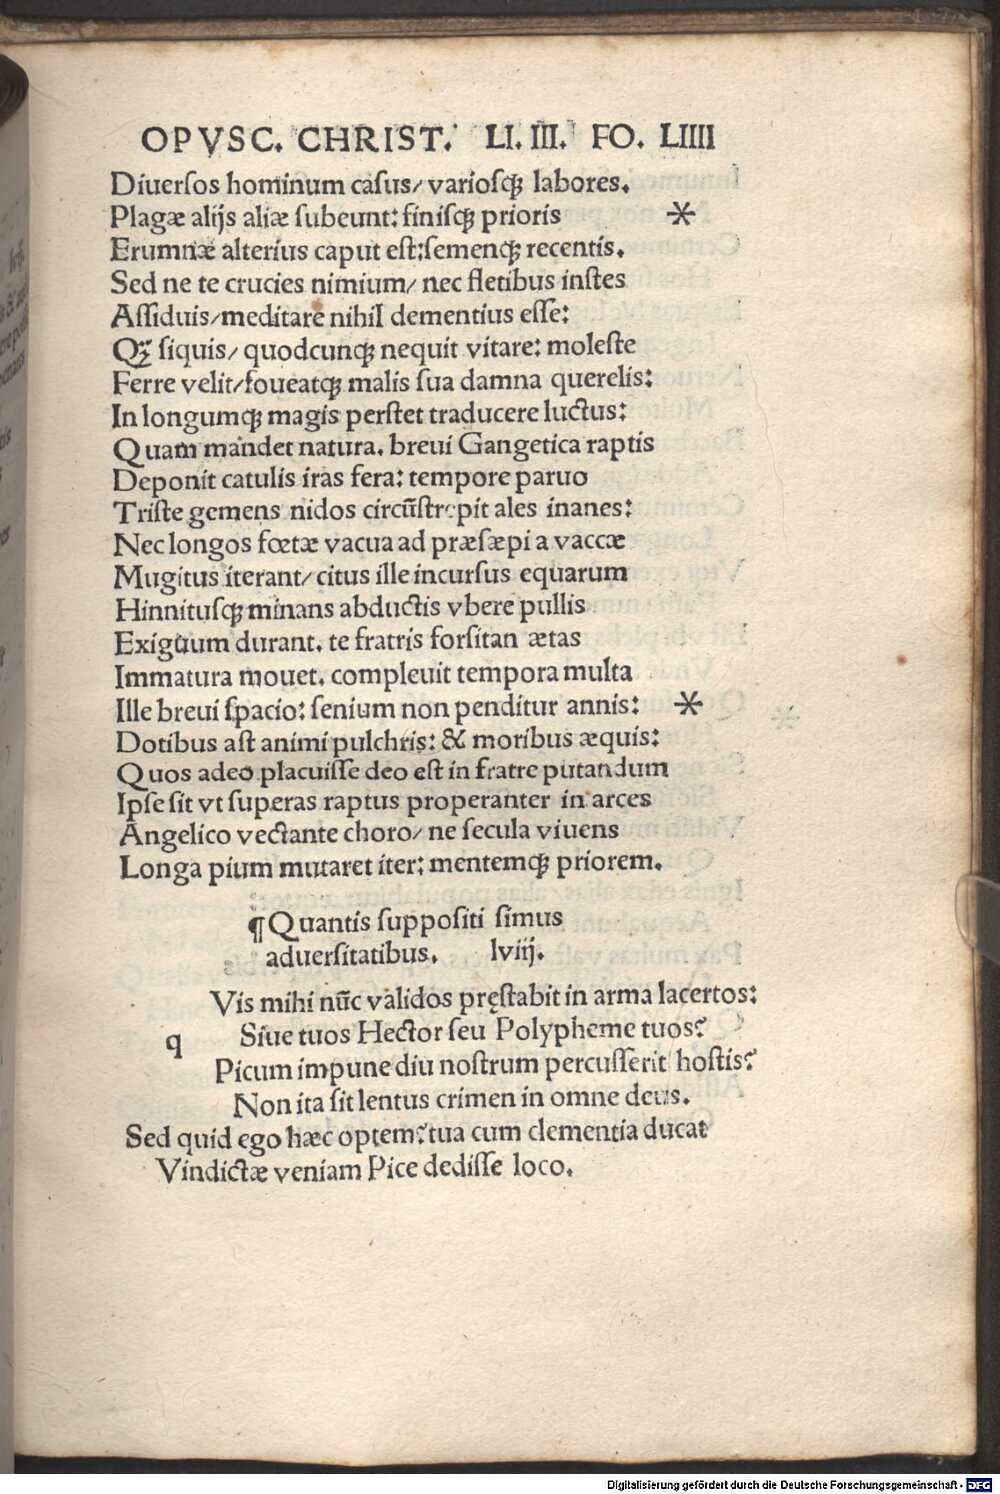 OPVSC. CHRIST. LI. III. FO. LIIII
Diuerſos hominum caſus/ varioſqꝫ labores.
Plagæ alijs aliæ ſubeunt: finiſqꝫ prioris *
Erumnæ alterius caput eſt:ſemenqꝫ recentis.
Sed ne te crucies nimium/ nec fletibus inſtes
Aſſiduis/meditare nihil dementius eſſe:
Qꝫ ſiquis/ quodcunqꝫ nequit vitare: moleſte
Ferre velit/foueatqꝫ malis ſua damna querelis:
In longumqꝫ magis perſtet traducere luctus:
Quam mandet natura. breui Gangetica raptis
Deponit catulis iras fera: tempore paruo
Triſte gemens nidos circūſtrepit ales inanes:
Nec longos fœtæ vacua ad præſæpi a vaccæ
Mugitus iterant/ citus ille incurſus equarum
Hinnituſqꝫ minans abductis vbere pullis
Exiguum durant. te fratris forſitan ætas
Immatura mouet. compleuit tempora multa
Ille breui ſpacio: ſenium non penditur annis: *
Dotibus aſt animi pulchris: & moribus æquis:
Quos adeo placuiſſe deo eſt in fratre putandum
Ipſe ſit vt ſuperas raptus properanter in arces
Angelico vectante choro/ ne ſecula viuens
Longa pium mutaret iter: mentemqꝫ priorem.
¶Quantis ſuppoſiti ſimus
aduerſitatibus. lviij.
Vis mihi nūc validos pręſtabit in arma lacertos:
q Siue tuos Hector ſeu Polypheme tuos?
Picum impune diu noſtrum percuſſerit hoſtis?
Non ita ſit lentus crimen in omne deus.
Sed quid ego hæc optem? tua cum clementia ducat
Vindictæ veniam Pice dediſſe loco.
Digitalisierung gefördert durch die Deutsche Forschungsgemeinschaft - DFG